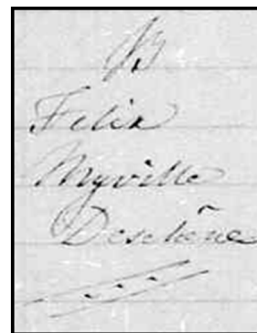 B
Felix
Myville
Deschêne